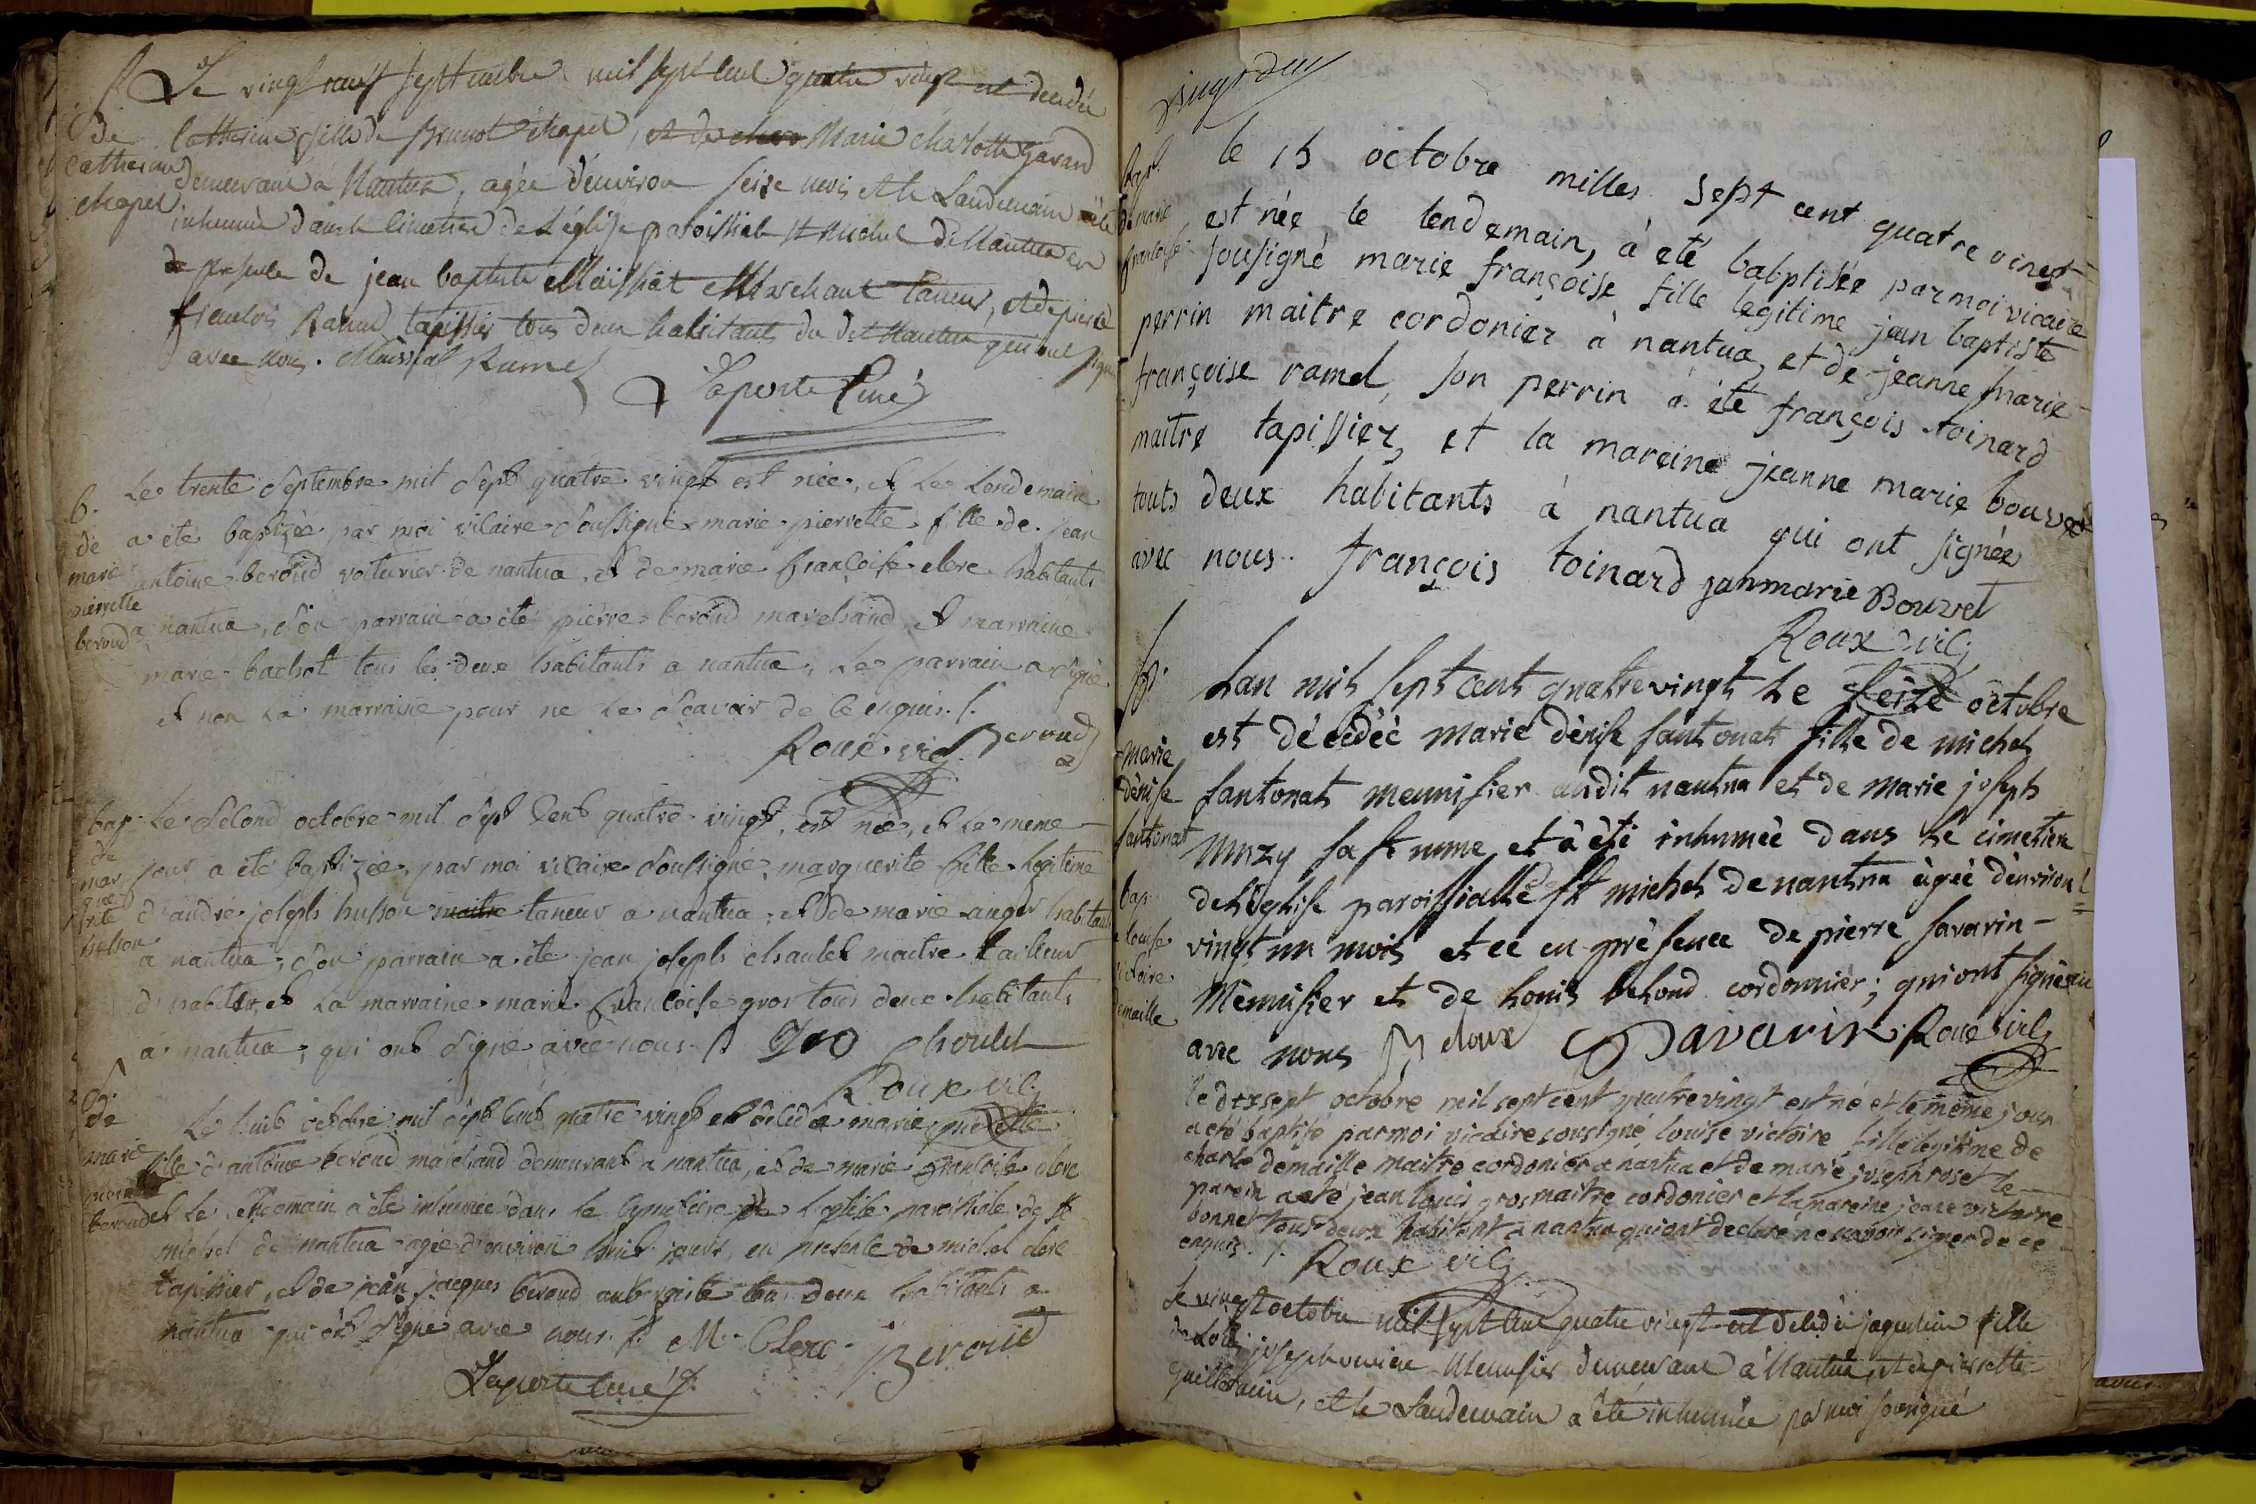 S. Le vingt neuf septembre mil sept cent quatre vingt est decedée
de Catherine fille de Benoit chapel, et de Marie charlotte
Catherine demeurant a Nantua, agée d'environ seise mois et le Landemain a été
chapel inhumée dans le Cimetiere de L'église paroissiale St Michel de Nantua en
presence de jean baptiste Maissiat Marchant Taneur, et de pierre
francois Ramel tapissier tous deux habitants du dit Nantua qui ont signé
avec nous. Maissiat Ramel
Laporte Curé
b. Le trente septembre mil sept quatre vingt est née, et le lendemain
de a été baptizée par moi vicaire soussigné marie pierrette fille de jean
marie antoine beroud voiturier de nantua, et de marie francoise clerc habitants
pierrette
beroud a nantua, son parrain a été pierre beroud marchand et marraine
marie bachot tous les deux habitants a nantua, le parrain a signé
et non la marraine pour ne le scavoir de ce enquis ./.
Roux vic. Beroud
bap. Le second octobre mil sept cent quatre vingt, est née, et le meme
de
mar jour a été baptizée par moi vicaire soussigné marguerite fille legitime
gue
rite d'andré joseph husson maitre taneur a nantua, et de marie auger habitants
husson a nantua, son parrain a été jean joseph chaulet maitre tailleur
d'habits, et la marraine marie francoise gros tous deux habitants
a nantua, qui ont signé avec nous. ./. gro choulet
Roux vic.
S.
de Le huit octobre mil sept cent quatre vingt est decedée marie pierrette
marie fille d'antoine beroud marchand demeurant a nantua, et de marie francoise clerc
pierrette
beroud et le lendemain a été inhumée dans le cymetière de l'eglise paroissiale de st
michel de nantua agée d'environ huit jours, en presence de michel clerc
tapissier, et de jean jacques beroud aubergiste tous deux habitants a
nantua qui ont signé avec nous. ./. M. Clerc. Beroud
Laporte curé
vingt deux
Bapt. le 15 octobre milles sept cent quatre vingt
de marie est née le lendemain, à eté babptisée par moi vicaire
francoise sousigné marie françoise fille legitime jean baptiste
perrin maitre cordonier à nantua, et de jeanne marie
françoise ramel, son perrin à été françois toinard
maitre tapissier, et la mareine jeanne marie bouvet
touts deux habitants à nantua qui ont signées
avec nous. françois toinard janmarie Bouvet
Roux vic.
S. Lan mil sept cent quatre vingt le seize octobre
est décédéé marie dènise santonat fille de michel
marie
dénise santonat menuisier audit nantua et de marie joseph
santonat sa femme et à été inhumèè dans le cimetiere
bap. de l'église paroissialle St michel de nantua agéé dènviron
louise vingt un mois et ce en prèsence de pierre savarin -
victoire
demaille Mènuisier et de louis beloud cordonnier; qui ont signé
avec nous Savarin Roux vic.
le dixsept octobre mil sept cent quatre vingt est né et le même jour
a été baptisé par moi vicaire sousigné louise victoire fille legitime de
charle demaille maitre cordonier a nantua et de marie joseph roset le
parein a eté jean louis gros maitre cordonier et la mareine jeane victoire
bonnet tous deux habitant a nantua qui ont declaré ne savoir signer de ce
enquis ./. Roux vic.
Le vingt octobre mil sept cent quatre vingt est decedée jaqueline fille
de joseph Menusier demeurant à Nantua, et de pierrette
Guillermin, et le Landemain a été inhumée par moi sousigné